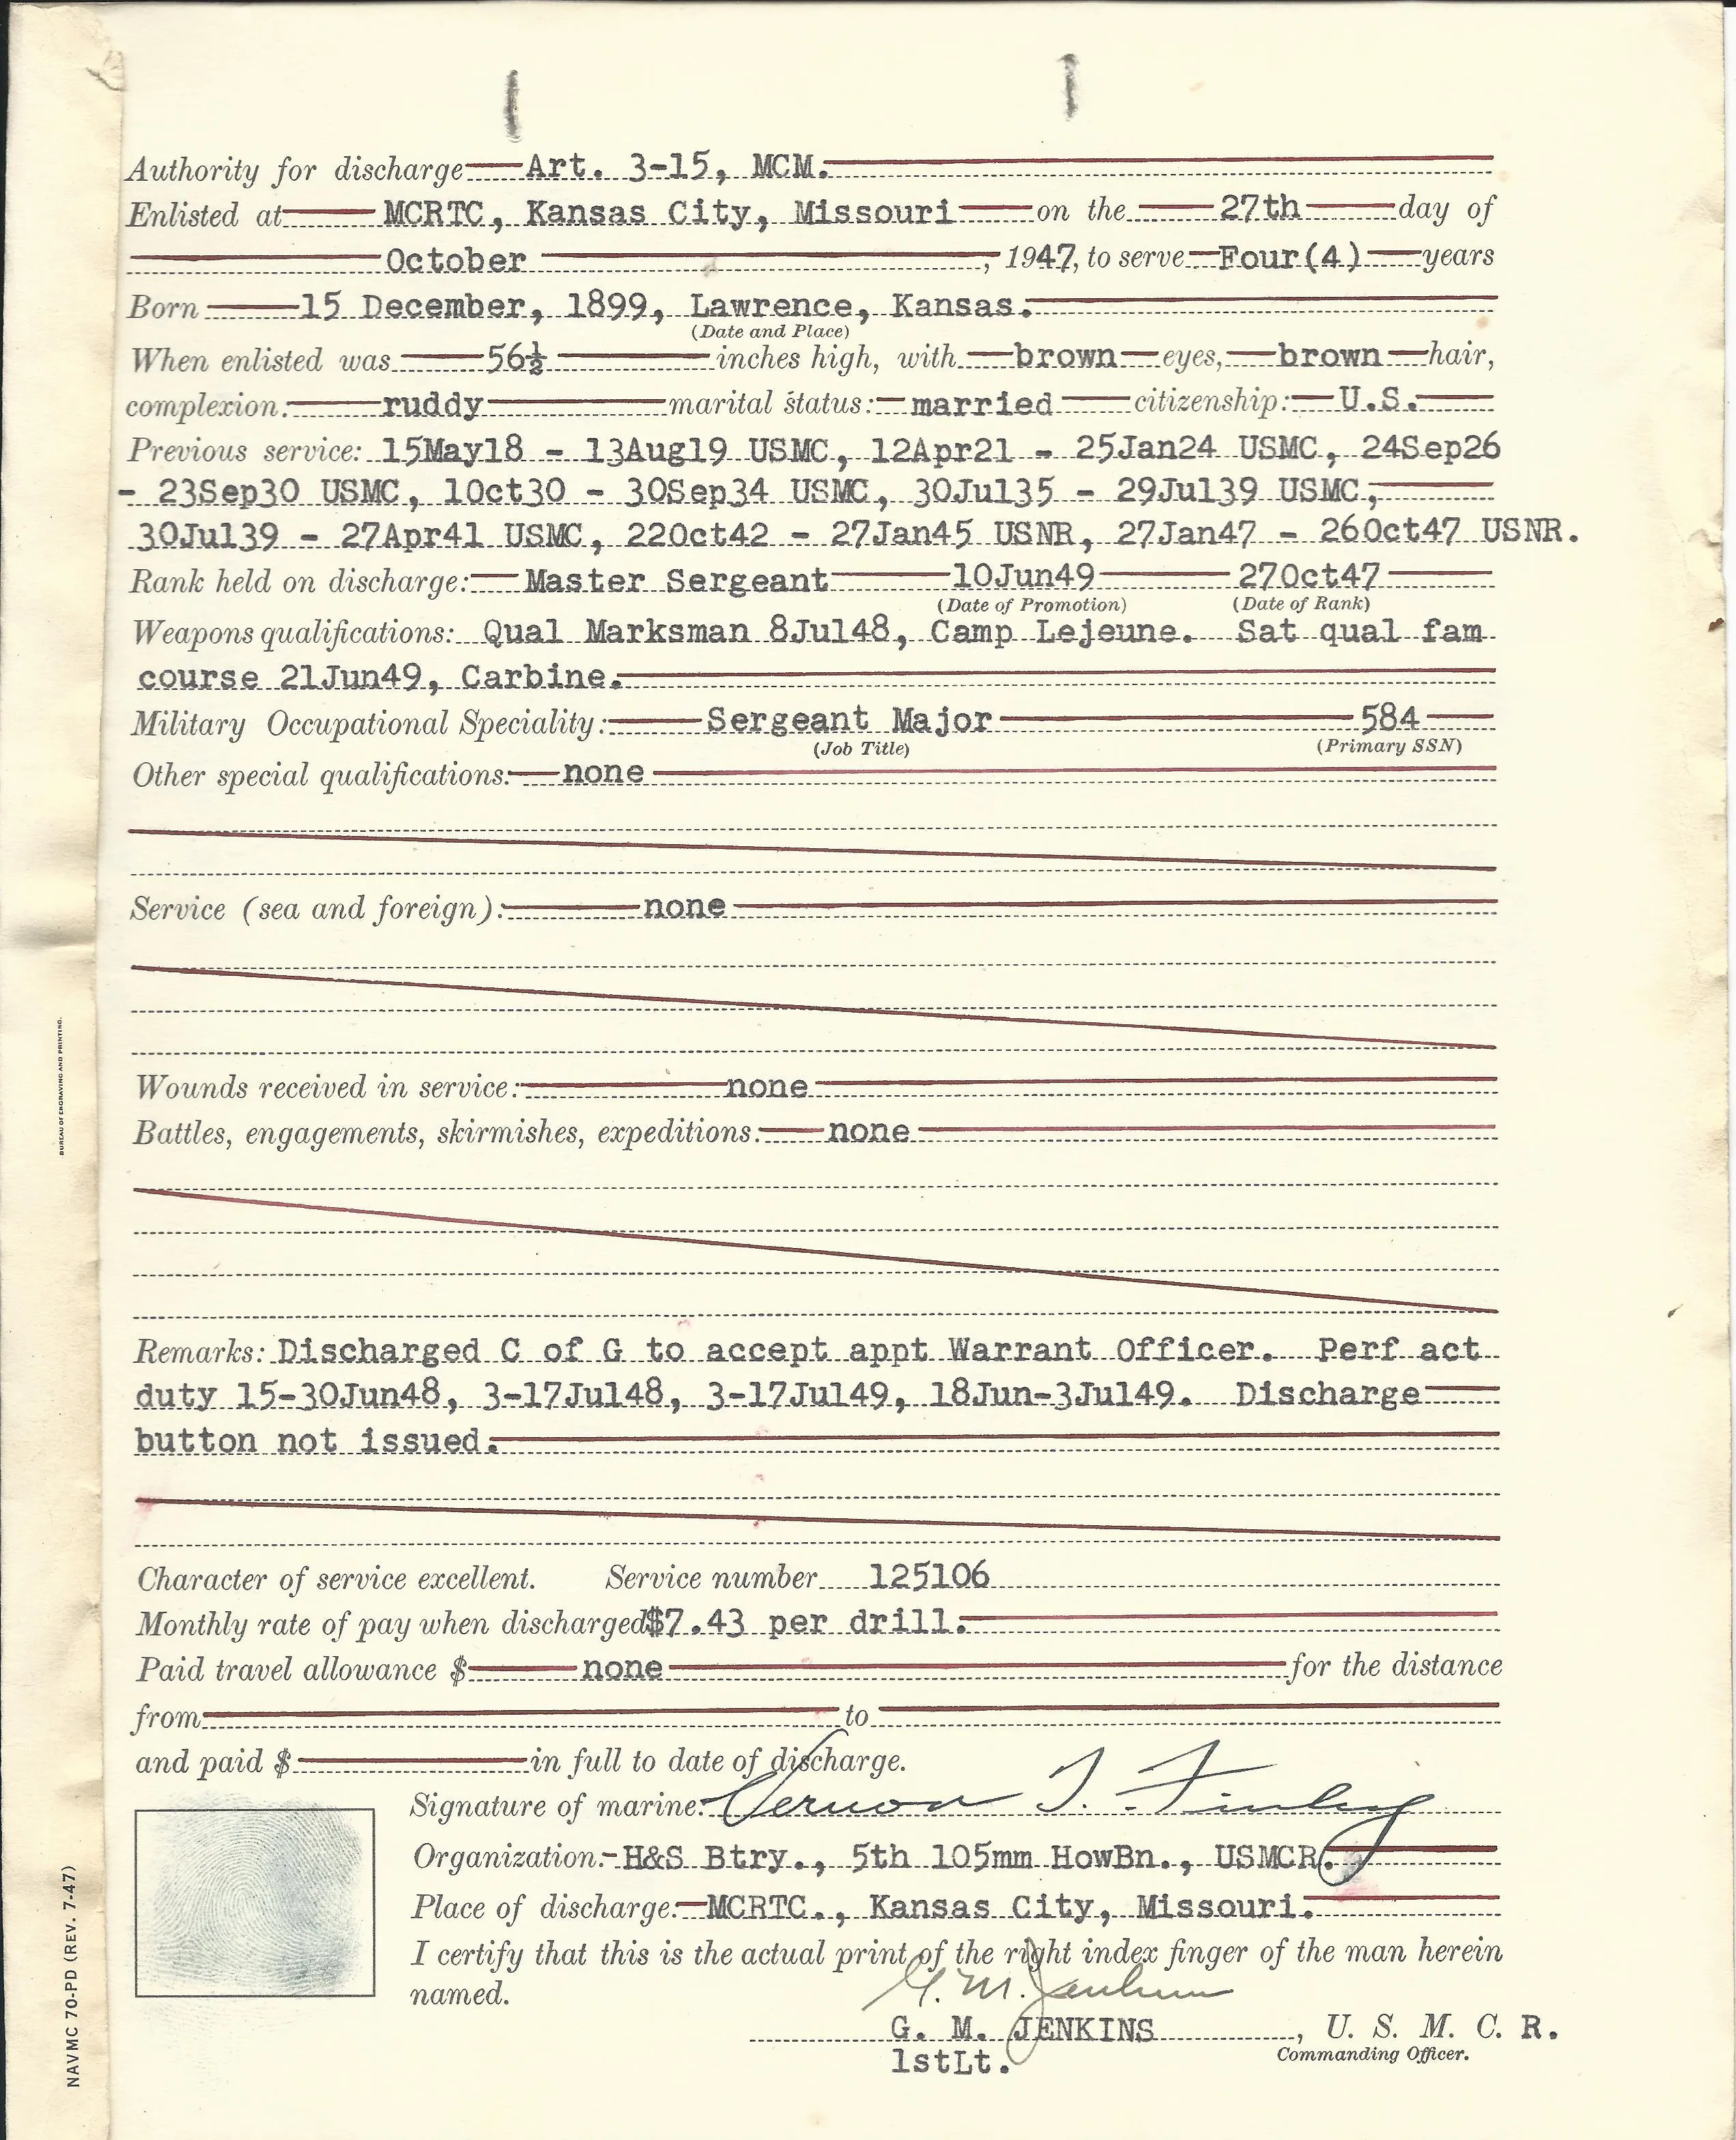 Authority for discharge Art. 3-15, MCM.
Enlisted at MCRTC, Kansas City, Missouri on the 27th day of
October, 1947, to serve Four(4) years
Born 15 December, 1899, Lawrence, Kansas.
(Date and Place)
When enlisted was 56½ inches high, with brown eyes, brown hair,
complexion: ruddy marital status: married citizenship: U.S.
Previous service: 15May18 - 13Aug19 USMC, 12Apr21 - 25Jan24 USMC, 24Sep26
- 23Sep30 USMC, 1Oct30 - 30Sep34 USMC, 30Jul35 - 29Jul39 USMC,
30Jul39 - 27Apr41 USMC, 22Oct42 - 27Jan45 USNR, 27Jan47 - 26Oct47 USNR.
Rank held on discharge: Master Sergeant 10Jun49 27Oct47
(Date of Promotion) (Date of Rank)
Weapons qualifications: Qual Marksman 8Jul48, Camp Lejeune. Sat qual fam
course 21Jun49, Carbine.
Military Occupational Speciality: Sergeant Major 584
(Job Title) (Primary SSN)
Other special qualifications: none
Service (sea and foreign): none
Wounds received in service: none
Battles, engagements, skirmishes, expeditions: none
Remarks: Discharged C of G to accept appt Warrant Officer. Perf act
duty 15-30Jun48, 3-17Jul48, 3-17Jul49, 18Jun-3Jul49. Discharge
button not issued.
Character of service excellent. Service number 125106
Monthly rate of pay when discharged $7.43 per drill.
Paid travel allowance $ none for the distance
from to
and paid $ in full to date of discharge.
Signature of marine: Vernon T. Finley
Organization: H&S Btry., 5th 105mm HowBn., USMCR.
Place of discharge: MCRTC., Kansas City, Missouri.
I certify that this is the actual print of the right index finger of the man herein
named.
G. M. Jenkins
G. M. JENKINS, U. S. M. C. R.
1stLt. Commanding Officer.
BUREAU OF ENGRAVING AND PRINTING.
NAVMC 70-PD (REV. 7-47)